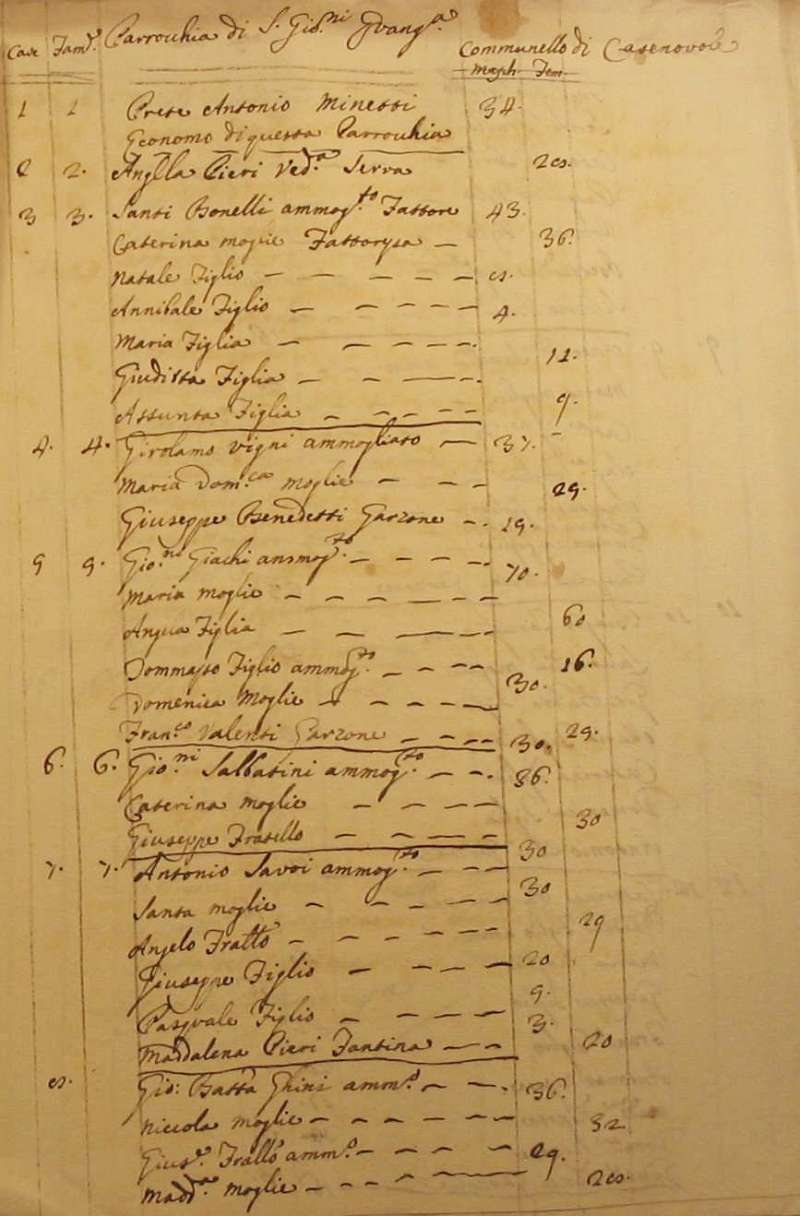 Case Fam.e Parrocchia di S. Gio.ni Evang.a Communello di Casenovole
Masch. Fem.
1 1 Prete Antonio Minetti 34.
Economo di questa Parrochia
2 2. Ang.lla Pieri Ved.a Serra
3 3. Santi Bonelli ammog.to Fattore 43.
Caterina moglie Fattoressa — 36.
Natale Figlio — — — — —
Annibale Figlio — — — — — 4.
Maria Figlia — — — — 12.
Giuditta Figlia — — — 9.
Assunta Figlia — — — —
4. 4. Girolamo Vigni ammogliato — 37.
Maria Dom.ca moglie — — — 29.
Giuseppe Benedetti Garzone — 19.
5 5. Gio.ni Giachi ammog.to — — — — 70.
Maria moglie — — — — — 60
Angiola Figlia — — — 16.
Tommasso Figlio ammog.to — — — 30.
Domenica Moglie — — — —
Fran.co Valenti Garzone — — — — 30. 29.
6. 6. Gio.ni Sabbatini ammog.to — — 36.
Caterina moglie — — — — 30
Giuseppe Fratello — — — — 30
7. 7. Antonio Savoi ammog.to — — — 30
Santa moglie — — — — 29
Angelo Fratto — — — — — 20
Giuseppe Figlio — — — — 9.
Pasquale Figlio — — — — 3.
Maddalena Pieri Fantina — — 20
Gio: Batta Ghini amm.o — — 36.
Niccola moglie — — — — — 32
Gius.e Frallo amm.o — — — — 29.
Madd.a moglie — — — —